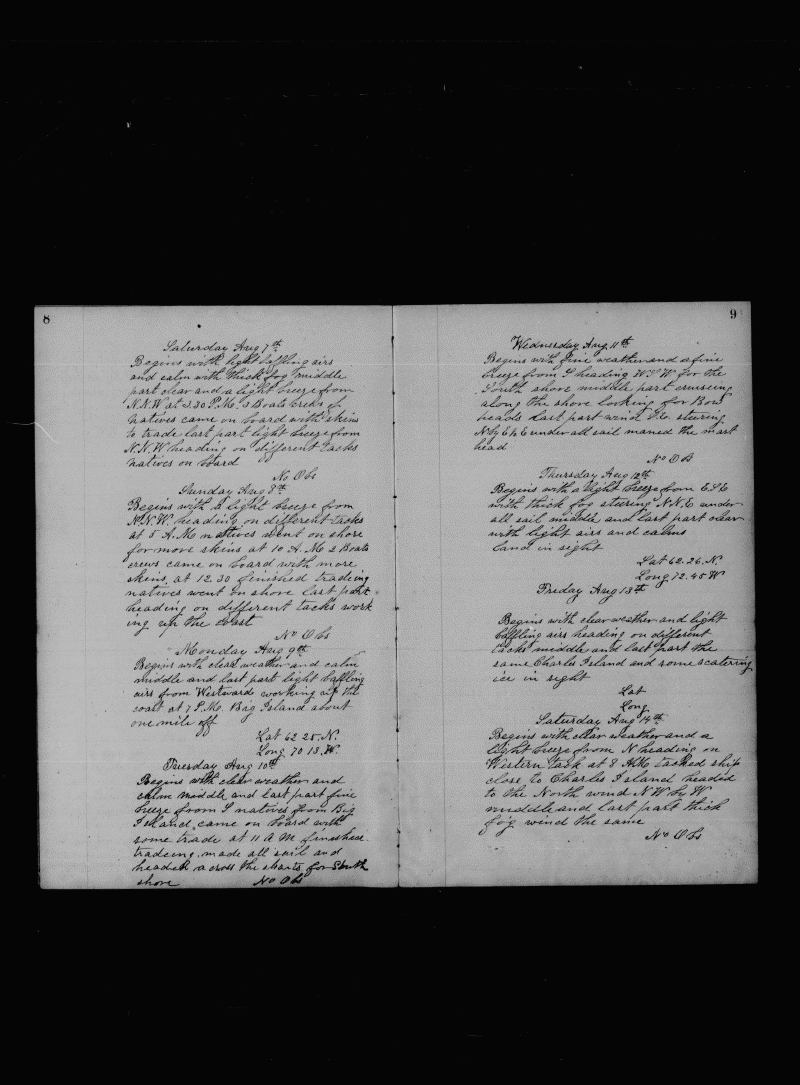 8
Saturday Aug 7th
Begins with light baffling airs
and calm with thick fog middle
part clear and a light breeze from
N.N.W at 2.30 P.M. 3 Boats crews of
natives came on board with skins
to trade last part light breeze from
N.N.W heading on different tacks
natives on board
No Obs
Sunday Aug 8th
Begins with a light breeze from
N.N.W. heading on different tacks
at 5 A.M natives went on shore
for more skins at 10 A.M 2 Boats
crews came on board with more
skins at 12.30 finished tradeing
natives went on shore last part
heading on different tacks work
ing up the coast
No Obs
Monday Aug 9th
Begins with clear weather and calm
middle and last part light baffling
airs from Westward working up the
coast at 7 P.M. Big Island about
one mile off
Lat 62 25.N.
Long 70 13.W.
Tuesday Aug 10th
Begins with clear weather and
calm middle and last part fine
breeze from S natives from Big
Island came on board with
some trade at 11 A M finished
tradeing made all sail and
headed across the straits for South
shore No Obs
9
Wednesday Aug 11th
Begins with fine weather and a fine
breeze from S heading W.S.W for the
South shore middle part cruiseing
along the shore looking for Bow
heads last part wind S.E. steering
N by E ½ E under all sail maned the mast
head
No OB
Thursday Aug 12th
Begins with a light breeze from E.S.E
with thick fog steering N.N.E under
all sail middle and last part clear
with light airs and calms
land in sight
Lat 62.26.N.
Long 72.45 W
Friday Aug 13th
Begins with clear weather and light
baffling airs heading on different
tacks middle and last part the
same Charles Island and some scatering
ice in sight
Lat
Long
Saturday Aug 14th
Begins with clear weather and a
light breeze from N heading on
Western tack at 8 A.M. tacked ship
close to Charles Island headed
to the North wind N.W. by W
middle and last part thick
fog wind the same
No Obs